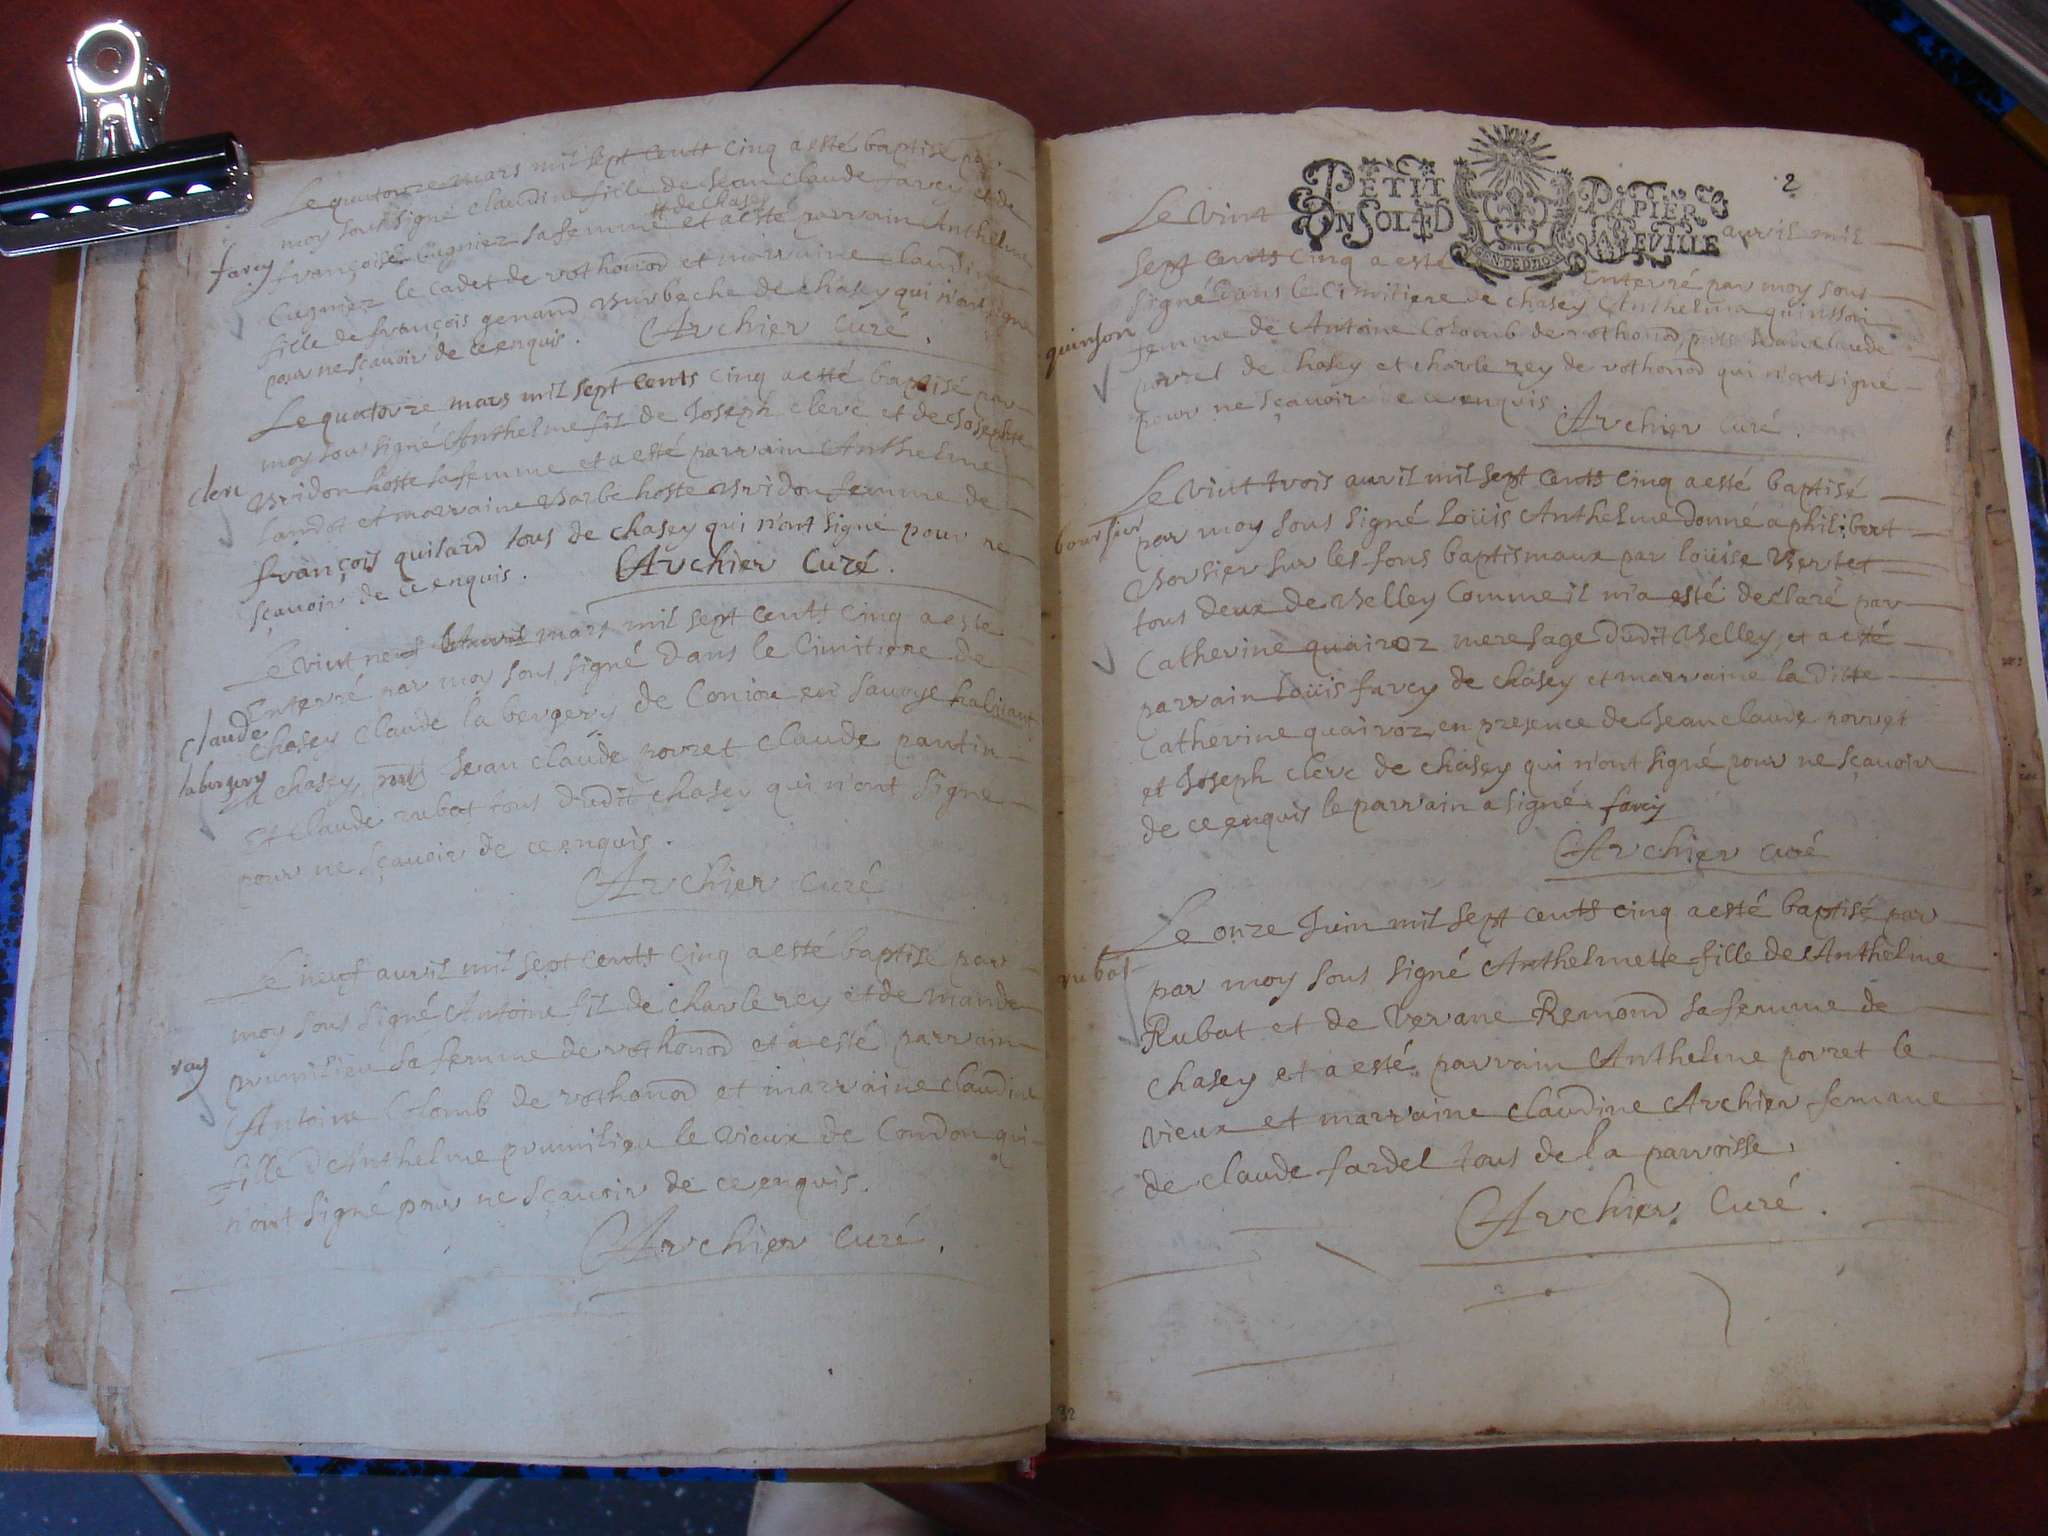 Le quatorze mars mil sept cents cinq a esté baptisé par
moy sous signé claudine fille de Jean claude farcy et de
et de chasey
françoise Cugniez sa femme et a esté parrain Anthelme
farcy
Cugniez le cadet de vothonod et marraine claudine
fille de françois genand Burbeche de chasey qui n'ont signé
pour ne sçavoir de ce enquis. Archier Curé.
Le quatorze mars mil sept cents cinq a esté baptisé par
moy sous signé Anthelme fil de Joseph clerc et de Josephte
clerc
Bridon hoste sa femme et a esté parrain Anthelme
Landot et marraine Barbe hoste Bridon femme de
françois quisard tous de chasey qui n'ont signé pour ne
sçavoir de ce enquis. Archier Curé.
Le vint neuf mars mil sept cents cinq a esté
Enterré par moy sous signé dans le Cimitiere de
claude
chasey Claude la bergery de Coniou en Savoye habitant
labergery
a chasey, Jean claude povret claude pantin
et claude rubat tous dudit chasey qui n'ont signé
pour ne sçavoir de ce enquis.
Archier Curé
Le neuf auril mil sept cents cinq a esté baptisé par
moy sous signé Antoine fil de charle rey et de mande
rey
prumilieu sa femme de vothonod et a esté parrain
Antoine Colomb de vothonod et marraine claudine
fille d'Anthelme prumilieu le vieux de Condon qui
n'ont signé pour ne sçavoir de ce enquis.
Archier Curé.
2
PETIT PAPIER
UN SOL 4 D LA FEUILLE
GEN. DE DIJON
Le vint auril mil
sept cents cinq a esté Enterré par moy sous
signé dans le Cimitiere de chasey Anthelma quinsson
quinson
femme de Antoine Colomb de vothonod, Jean claude
povret de chasey et charle rey de vothonod qui n'ont signé
pour ne sçavoir de ce enquis.
Archier Curé.
Le vint trois auril mil sept cents cinq a esté baptisé
boursier
par moy sous signé Loüis Anthelme donné a philibert
Borsier sur les fons baptismaux par loüise Bertet
tous deux de Belley Comme il m'a esté declaré par
Catherine quairoz mere sage dudit Belley, et a esté
parrain Loüis farcy de chasey et marraine la ditte
Catherine quairoz, en presence de Jean claude povret
et Joseph clerc de chasey qui n'ont signé pour ne sçavoir
de ce enquis le parrain a signé. farcy
Archier curé
Le onze Juin mil sept cents cinq a esté baptisé par
rubat
par moy sous signé Anthelmette fille de Anthelme
Rubat et de Verane Remond sa femme de
chasey et a esté parrain Anthelme povret le
vieux et marraine claudine Archier femme
de claude fardel tous de la parroisse.
Archier Curé.
32